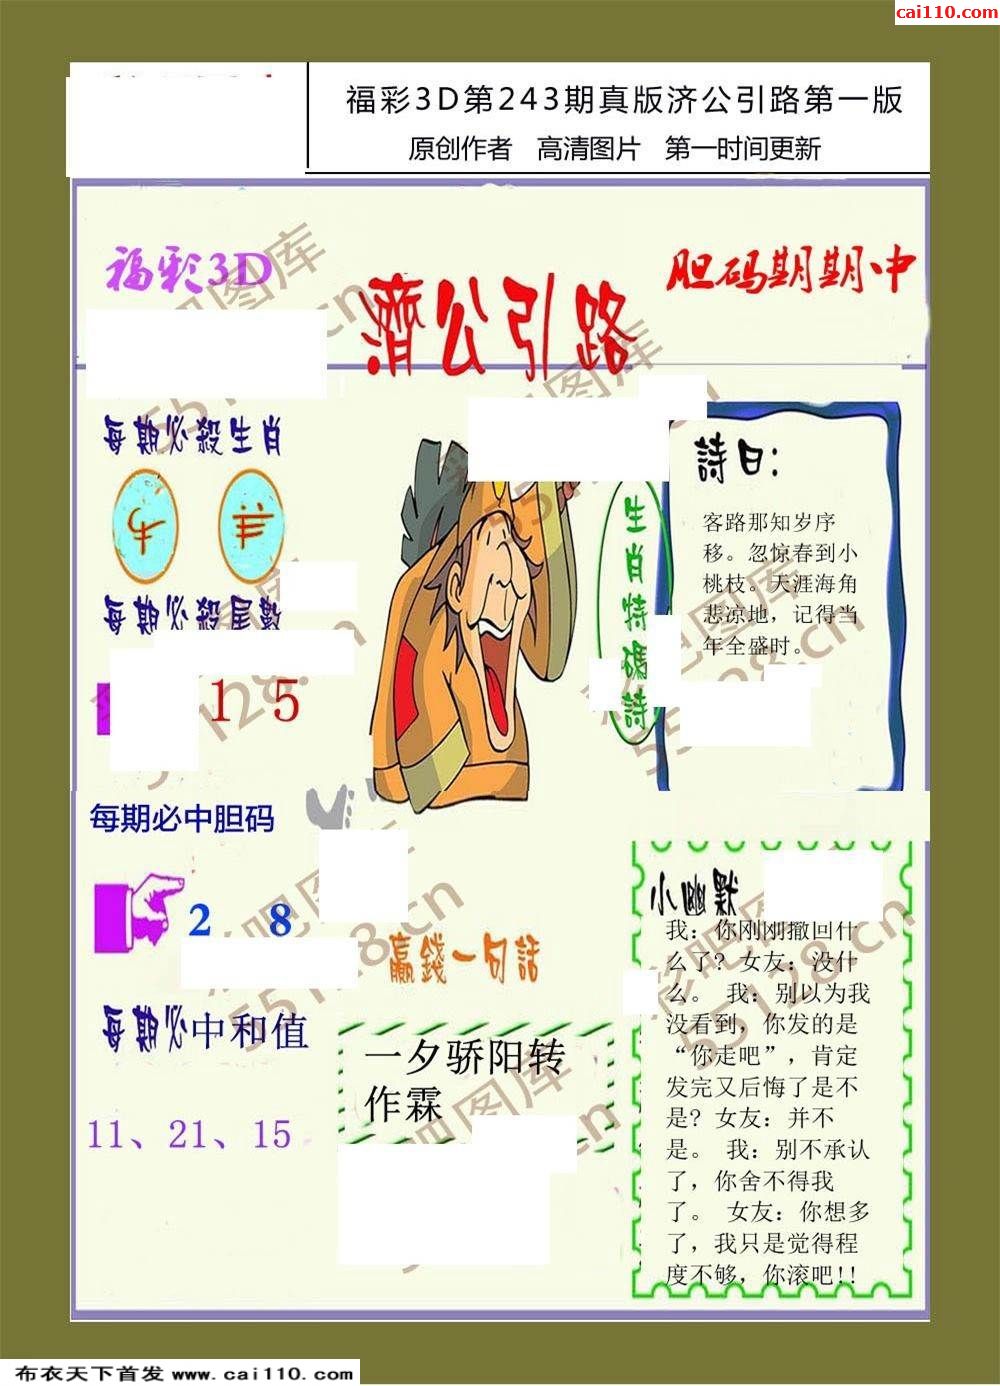 cai110.com
福彩3D第243期真版济公引路第一版
原创作者 高清图片 第一时间更新
福彩3D
濟公引路
胆码期期中
每期必殺生肖
牛 羊
每期必殺尾數
1 5
每期必中胆码
2 8
每期必中和值
11、21、15
生肖特碼詩
詩曰:
客路那知岁序
移。忽惊春到小
桃枝。天涯海角
悲凉地，记得当
年全盛时。
贏錢一句話
一夕骄阳转
作霖
小幽默
我：你刚刚撤回什
么了？女友：没什
么。 我：别以为我
没看到，你发的是
“你走吧”，肯定
发完又后悔了是不
是？女友：并不
是。 我：别不承认
了，你舍不得我
了。 女友：你想多
了，我只是觉得程
度不够，你滚吧!!
彩吧图库
55128.cn
布衣天下首发 www.cai110.com